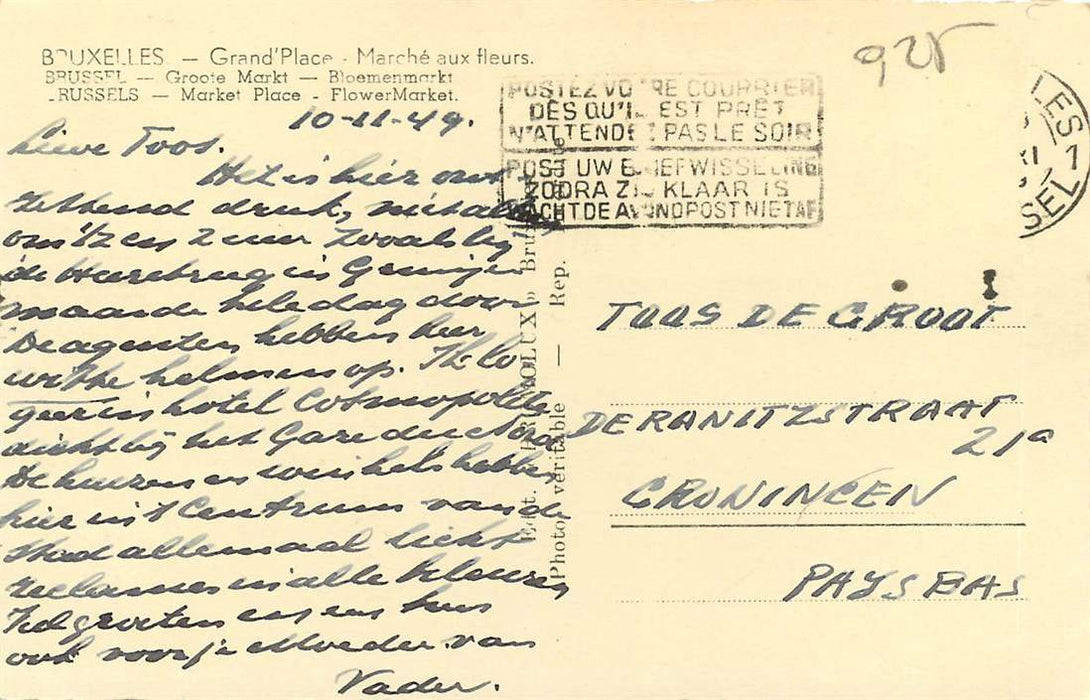 BRUXELLES — Grand'Place - Marché aux fleurs.
BRUSSEL — Groote Markt — Bloemenmarkt
BRUSSELS — Market Place - FlowerMarket.
10-11-49.
Lieve Toos.
Het is hier ont-
zettend druk, niet alleen
om 12 en 2 uur zooals bij
de Heerebrug in Groningen
maar de hele dag door
De agenten hebben hier
witte helmen op. Ik lo-
geer in hotel Cosmopolite
dicht bij het Gare du Nord
De huizen en winkels hebben
hier in 't Centrum van de
stad allemaal licht
reclames in alle kleuren
Veel groeten en een kus
ook voor je Moeder van
Vader.
Photo véritable — Rep.
925
POSTEZ VOTRE COURRIER
DÈS QU'IL EST PRÊT
N'ATTENDEZ PAS LE SOIR
POST UW BRIEFWISSELING
ZODRA ZIJ KLAAR IS
WACHT DE AVONDPOST NIET AF
LES 1
XI
SEL 1
TOOS DE GROOT
DE RANITZSTRAAT
21a
GRONINGEN
PAYS BAS